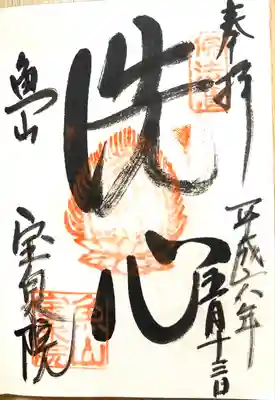 奉拝
平成六年
五月十三日
洗心
魚山
宝泉院